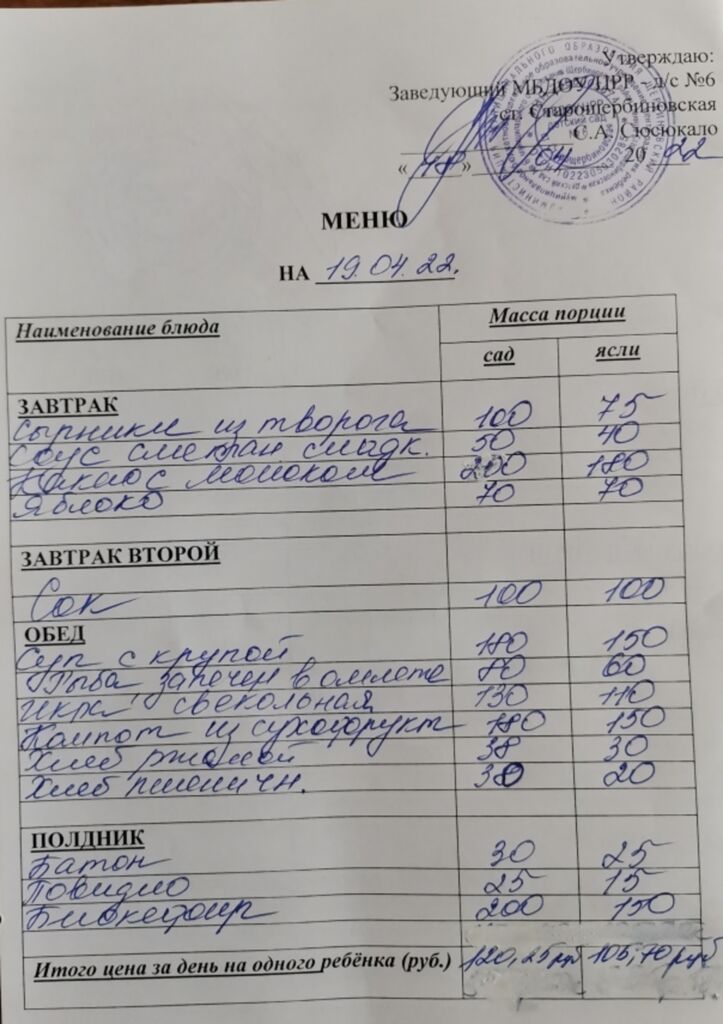 Утверждаю:
Заведующий МБДОУ ЦРР - д/с №6
ст. Старощербиновская
С.А. Сюсюкало
« 18 » 04 20 22
МЕНЮ
НА 19.04.22.
Наименование блюда Масса порции
сад ясли
ЗАВТРАК
Сырники из творога 100 75
Соус сметан сладк. 50 40
Какао с молоком 200 180
Яблоко 70 70
ЗАВТРАК ВТОРОЙ
Сок 100 100
ОБЕД
Суп с крупой 180 150
Рыба запечен в омлете 80 60
Икра свекольная 130 110
Компот из сухофрукт 180 150
Хлеб ржаной 38 30
Хлеб пшеничн. 30 20
ПОЛДНИК
Батон 30 25
Повидло 25 15
Биокефир 200 150
Итого цена за день на одного ребёнка (руб.) 120,25руб 105,70руб